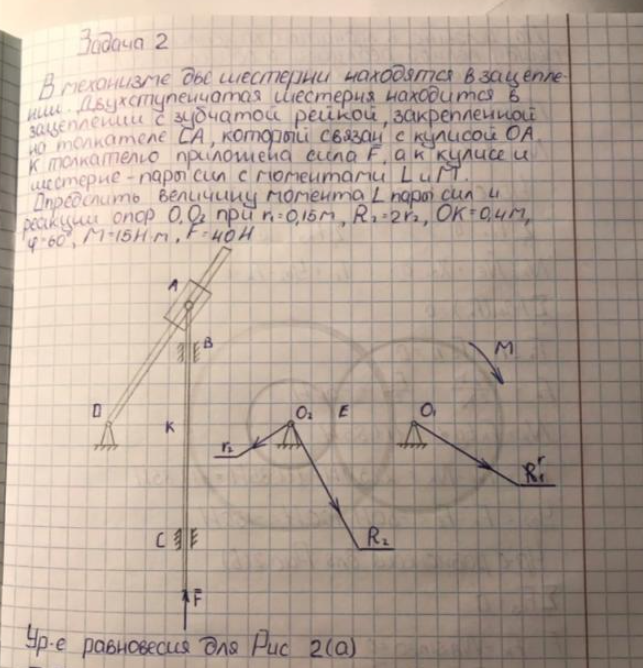 Задача 2
В механизме две шестерни находятся в зацепле-
нии. Двухступенчатая шестерня находится в
зацеплении с зубчатой рейкой, закрепленной
на толкателе CA, который связан с кулисой OA.
К толкателю приложена сила F, а к кулисе и
шестерне - пары сил с моментами L и M.
Определить величину момента L пары сил и
реакции опор O, O₂ при r₁=0,15м, R₂=2r₂, OK=0,4м,
φ=60°, M=15Н·м, F=40Н
A
B
M
O
K
O₂
E
O₁
r₂
R₁
C
R₂
F
Ур-е равновесия для Рис 2(а)